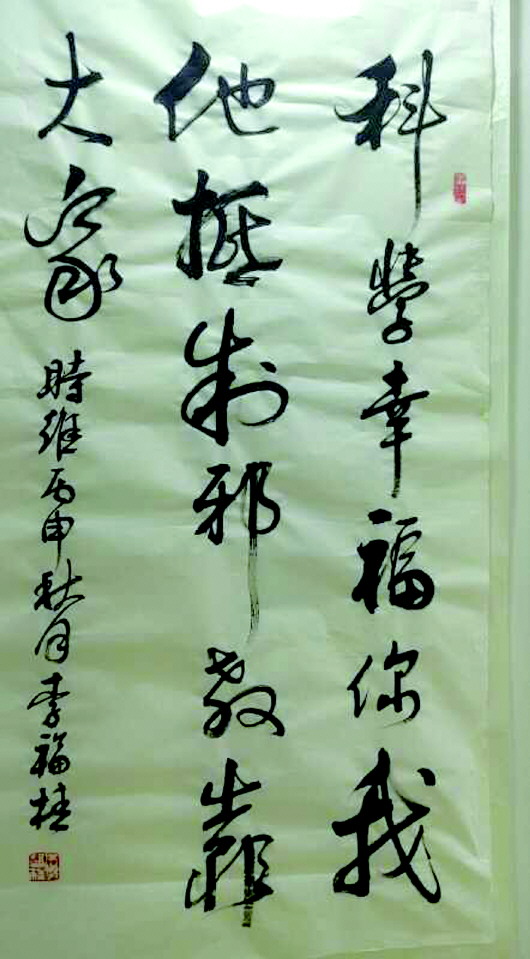 科學幸福你我
他抵制邪教靠
大家
時維丙申秋月李福桂